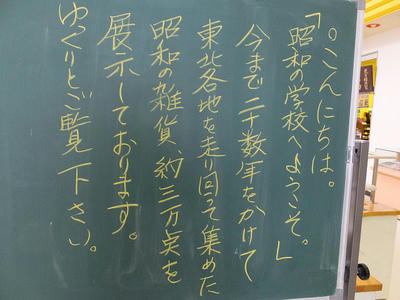 「。こんにちは。
昭和の学校へようこそ。」
今まで二十数年をかけて
東北各地を走り回って集めた
昭和の雑貨、約三万点を
展示しております。
ゆっくりとご覧下さい。